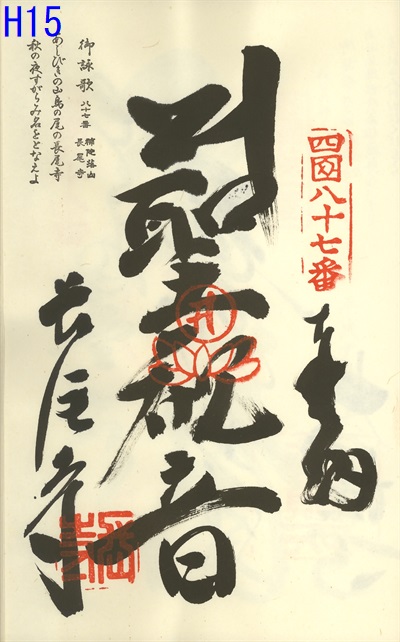 H15
四国八十七番
奉納
聖観音
長尾寺
御詠歌 八十七番 補陀落山 長尾寺
あしびきの山鳥の尾の長尾寺
秋の夜すがらみ名をとなえよ